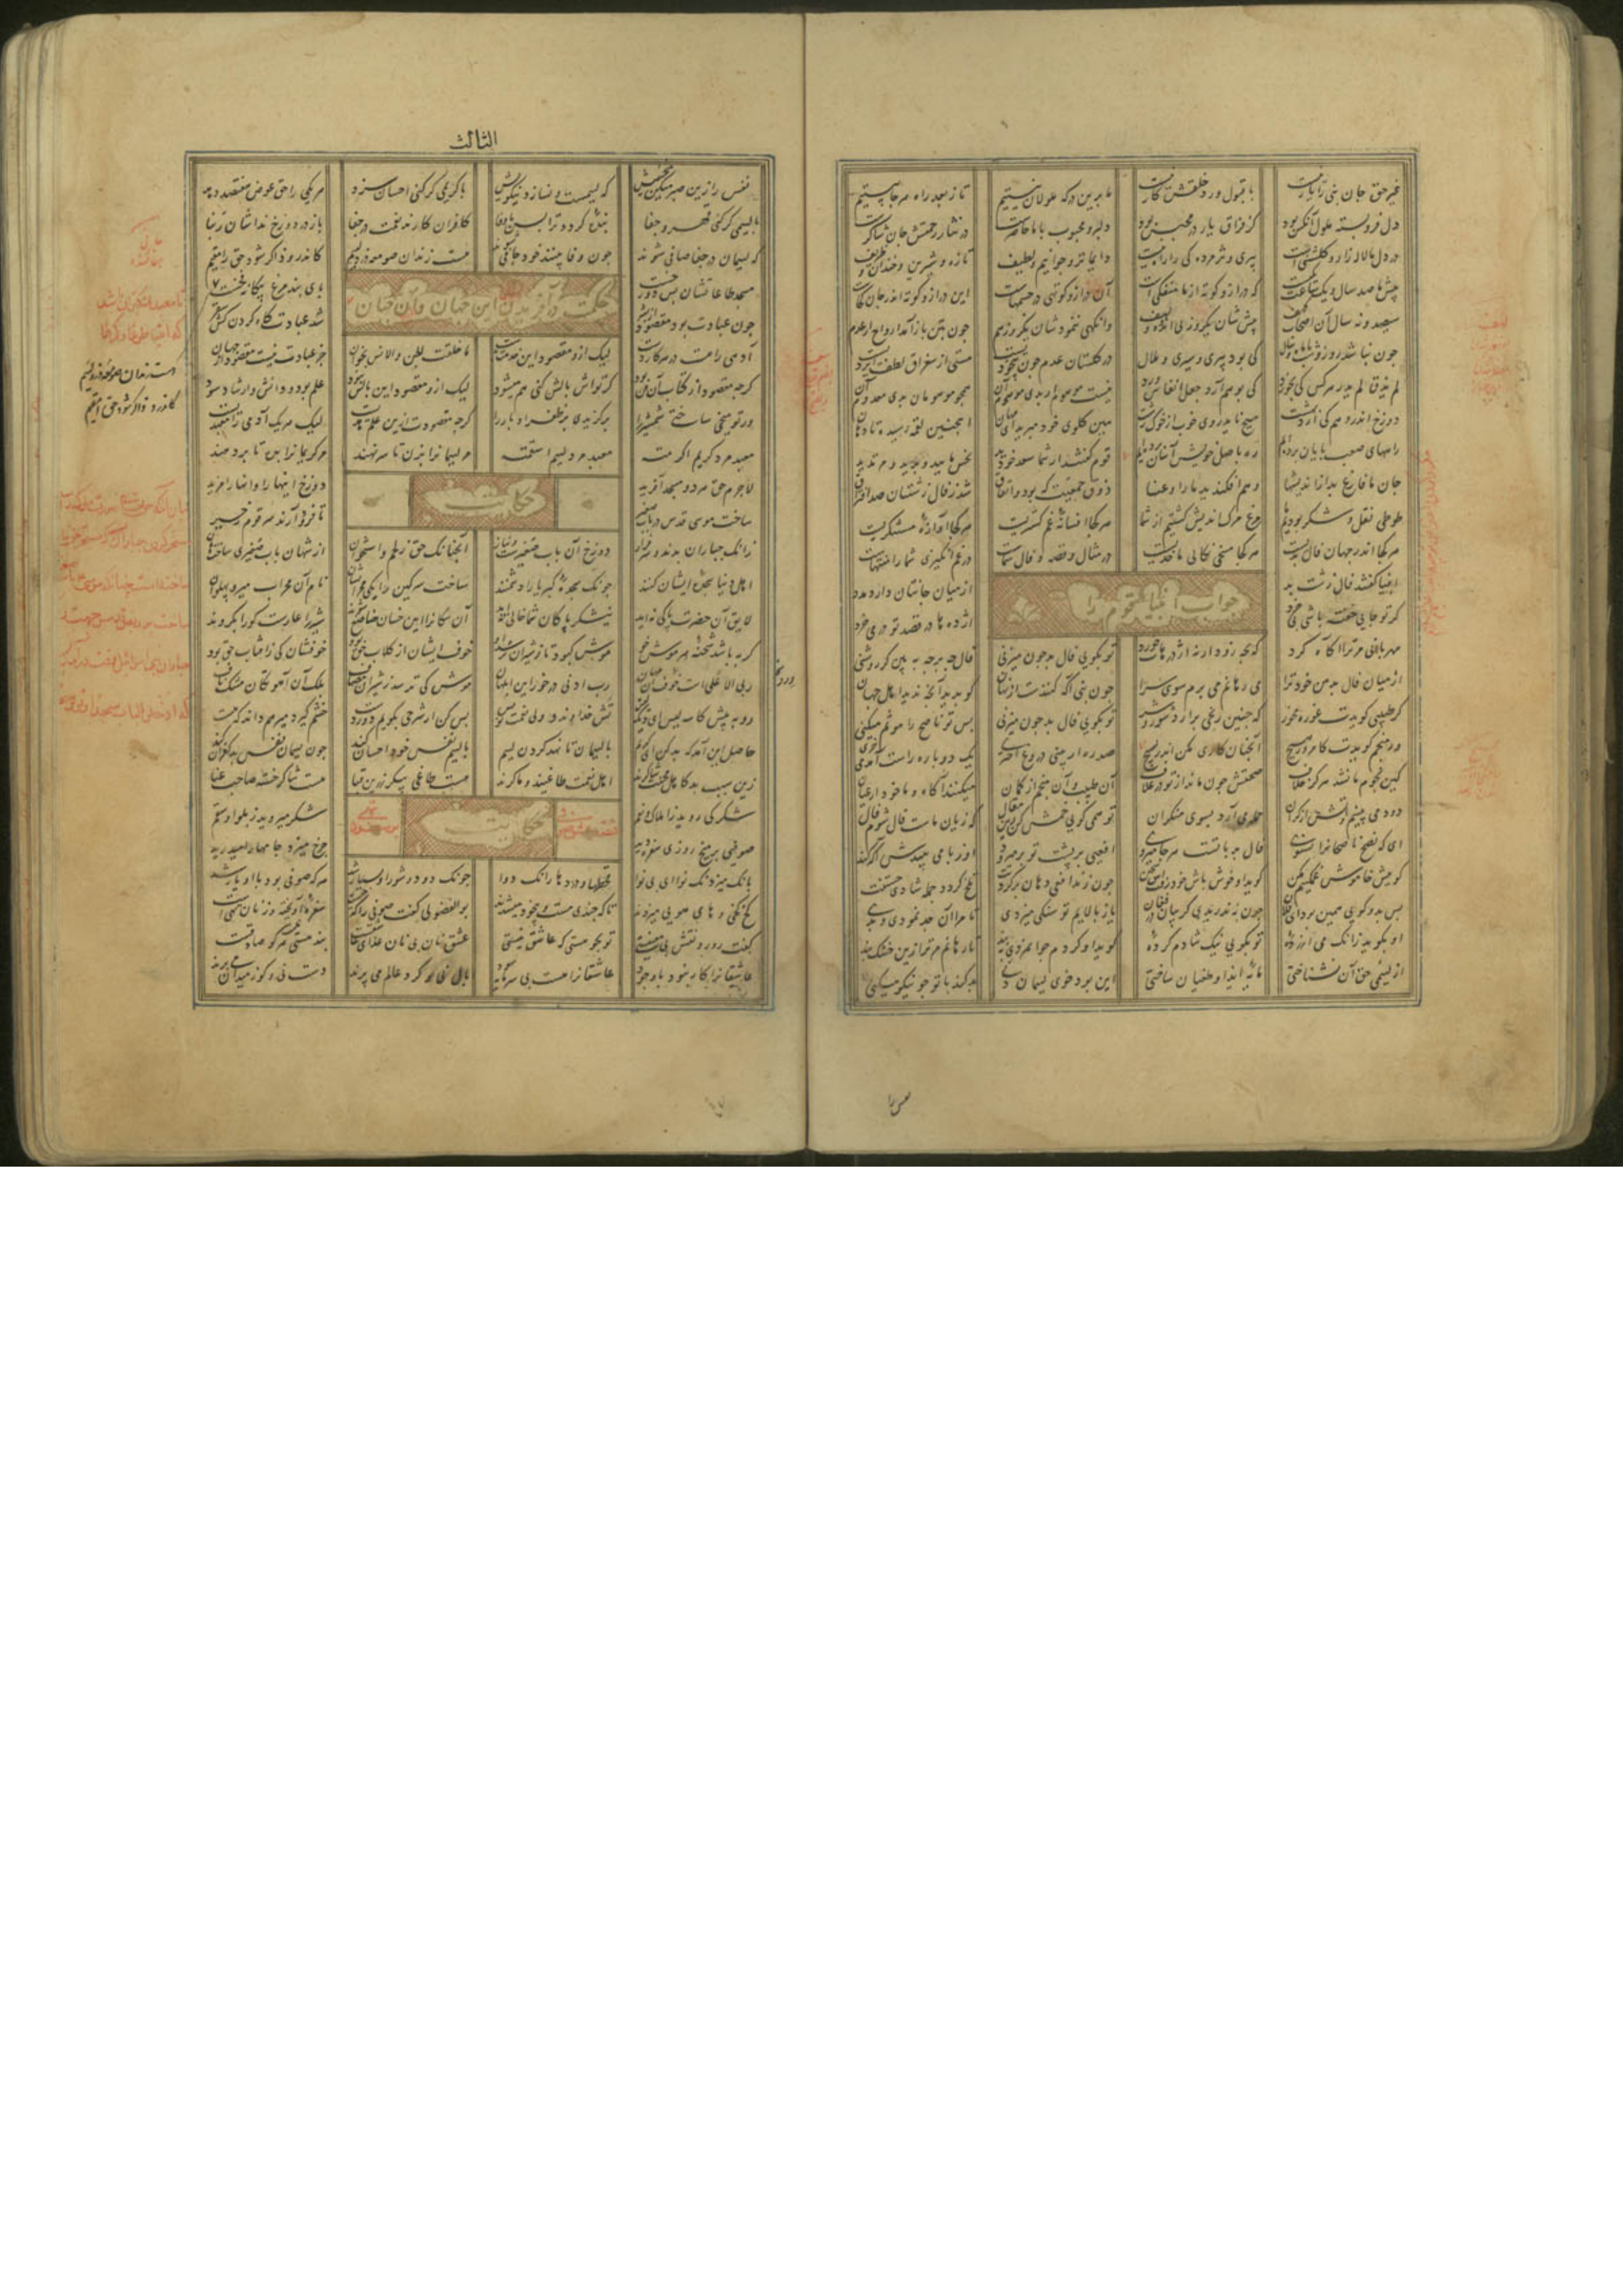 غیر حق جان نبی را یار نیست با قبول و رد خلقش کار نیست ما برین درکه ملولان نیستیم تا ز بعد راه هر جا بیستیم
دل فروبسته ملول آنکس بود کز فراق یار در محبس بود دلبر و محبوب با ما حاضرست در نثار رحمتش جان شاکرست
در دل ما لاله زار و کلشنیست پیری و پژمردکی را راه نیست دایما تر و جوانیم و لطیف تازه و شیرین و خندان و ظریف
پیش ما صد سال و یک ساعت یکیست که دراز و کوته از ما منفکیست آن دراز و کوتهی در جسمهاست این دراز و کوته اندر جان کجاست
سیصد و نه سال آن اصحاب کهف پیش شان یکروز بی اندوه و لهف وانکهی ننمودشان یکروز هم چون بتن باز آمد ارواح از عدم
چون نباشد روز و شب با ماه و سال کی بود پیری و سیری و ملال در کلستان عدم چون بیخودیست مستی از سغراق لطف ایزدیست
لم یذق لم یدر هر کس کی نخورد کی بوهم آرد جعل انفاس ورد نیست موهوم ار بدی موهوم آن همچو موهومان بدی معدوم آن
دوزخ اندر وهم کی آرد بهشت هیچ تابد روی خوب از خوک زشت هین کلوی خود مبر هان ای مهان اینچنین لقمه رسیده تا دهان
راههای صعب پایان برده ایم ره باهل خویش آسان کرده ایم قوم گفتند ار شما سعد خودید نحس مایید و ضدید و مرتدید
جان ما فارغ بد از اندیشها در غم افکندید ما را و عنا ذوق جمعیت که بود و اتفاق شد ز فال زشتتان صد افتراق
طوطی نقل و شکر بودیم ما مرغ مرک اندیش کشتیم از شما هر کجا افسانه غم کستریست هر کجا آوازه مستنکریست
هر کجا اندر جهان فال بدیست هر کجا مسخی نکالی ماخذیست در مثال و قصه و فال شماست در غم انکیزی شما را مشتهاست
جواب انبیا قوم را
انبیا کفتند فال زشت و بد از میان جانتان دارد مدد
کر تو جایی خفته باشی اژدها در قصد تو
مهربانی مر ترا آکاه کرد که بجه زود ارنه اژدرهات خورد تو بکویی فال بد چون میزنی فال چه برجه ببین در روشنی
از میان فال بد من خود ترا می رهانم می برم سوی سرا چون نبی آکه کننده ست از نهان کو بدید آنچه ندید اهل جهان
کر طبیبی کویدت غوره مخور که چنین رنجی برآرد شور و شر تو بکویی فال بد چون میزنی پس تو ناصح را موثم میکنی
ور منجم کویدت کامروز هیچ آنچنان کاری مکن اندر پسیچ صد ره ار بینی دروغ اختری یک دوباره راست آید می خری
این نجوم ما نشد هرکز خلاف صحتش چون ماند از تو در غلاف آن طبیب و آن منجم از کمان میکنند آکاه و ما خود از عیان
دود می بینیم و آتش از کران حمله می آرد بسوی منکران تو همی کویی خمش کن زین مقال که زیان ماست قال شوم فال
ای که نصح ناصحانرا نشنوی فال بد با تست هر جا میروی افعیی بر پشت تو بر میرود او ز بامی بیندش آکه کند
کوییش خاموش غمکینم مکن کوید او خوش باش خود رفت آن سخن چون زند افعی دهان بر کردنت تلخ کردد جمله شادی جستنت
پس بدو کویی همین بود ای فلان چون بندریدی کریبان در فغان یا ز بالایم تو سنکی میزدی تا مرا آن جد نمودی و بدی
او بکوید زانک می آزرده تو بکویی نیک شادم کرده کوید او کردم جوامردی بپند تا رهانم من ترا زین خشک بند
از لئیمی حق آن نشناختی مایه ایذا و طغیان ساختی این بود خوی لئیمان دنی بد کند با تو چو نیکویی کنی
نفس را
الثالث
نفس را زین صبر میکن منحنیش که لئیمست و نسازد نیکویش با کریمی کر کنی احسان سزد هر یکی را حق عوض هفتصد دهد
با لئیمی کر کنی قهر و جفا بنده کردد ترا بس با وفا کافران کارند نعمت در جفا باز در دوزخ نداشان ربنا
که لئیمان در جفا صافی شوند چون وفا بینند خود جافی شوند هست زندان صومعه دزد لئیم کاندرو ذاکر شود حق را مقیم
حکمت در آفریدن این جهان و آن جهان
مسجد طاعاتشان پس دوزخست پای بند مرغ بیکانه فخست
چون عبادت بود مقصود از بشر شد عبادتکاه کردن کش سقر
آدمی را هست در هر کار دست لیک ازو مقصود این خدمت بدست ما خلقت الجن والانس بخوان جز عبادت نیست مقصود از جهان
کرچه مقصود از کتاب آن فن بود کر تواش بالش کنی هم میشود لیک ازو مقصود این بالش نبود علم بود و دانش و ارشاد و سود
ور تو میخی ساختی شمشیر را برکزیدی بر ظفر ادبار را کرچه مقصود لیک هر یک آدمی را معبدیست
معبد مرد کریم اکرمته معبد مرد لئیم اسقمته مر لئیمانرا بزن تا سر نهند مر کریمانرا بده تا بر دهند
حکایت
لاجرم حق هر دو مسجد آفرید دوزخ اینها را و آنها را مزید
ساخت موسی قدس در باب صغیر تا فرود آرند سر قوم زحیر
زانک جباران بدند و سرفراز دوزخ آن باب صغیرست و نیاز آنچنانک حق ز لحم و استخوان از شهان باب صغیری ساخت هان
اهل دنیا سجده ایشان کنند چونک سجده کبریا را دشمنند ساخت سرکین دانکی محرابشان نام آن محراب میر و پهلوان
لایق آن حضرت پاکی نه اید نیشکر پاکان شما خالی نه اید آن سکانرا این خسان خاضع شوند شیر را عارست کو را بکروند
کربه باشد شحنه هر موش خو موش که بود تا ز شیران ترسد او خوف ایشان از کلاب حق بود خوفشان کی ز آفتاب حق بود
ربی الاعلی است ورد آن مهان رب ادنی درخور این ابلهان موش کی ترسد ز شیران مصاف بلک آن آهوتکان مشک ناف
رو به پیش کاسه لیس ای دیک لیس تش خداوند و ولی نعمت نویس بس کن ار شرحی بکویم دور دست خشم کیرد میر و هم داند که هست
حاصل این آمد که بد کن ای کریم با لئیمان تا نهد کردن لئیم با لئیم نفس خود احسان کند چون لئیمان نفس بد کفران کند
زین سبب بد کاهل محنت شاکرند اهل نعمت طاغیند و ماکرند هست طاغی بیکلر زرین قبا هست شاکر خسته صاحب عبا
شکر کی روید ز املاک و نعم شکر میروید ز بلوا و سقم
حکایت
صوفیی بر میخ روزی سفره دید چرخ میزد جامها را میدرید
بانک میزد نک نوای بی نوا قحطها و دردها را نک دوا چونک دود و شور او بسیار شد هر که صوفی بود با او یار شد
کخ کخی و های هویی میزدند تا که چندی مست و بیخود میشدند بوالفضولی کفت صوفی را که چیست سفره آویخته وز نان تهیست
کفت رو رو نقش بی معنیستی تو بجو هستی که عاشق نیستی عشق نان بی نان غذای عاشقست بند هستی نیست هر کو صادقست
عاشقانرا کار نبود با وجود عاشقانرا هست بی سرمایه سود بال نی و کرد عالم می پرند دست نی و کوز میدان می برند
هست زندان صومعه دزد لئیم
کاندرو ذاکر شود حق را مقیم